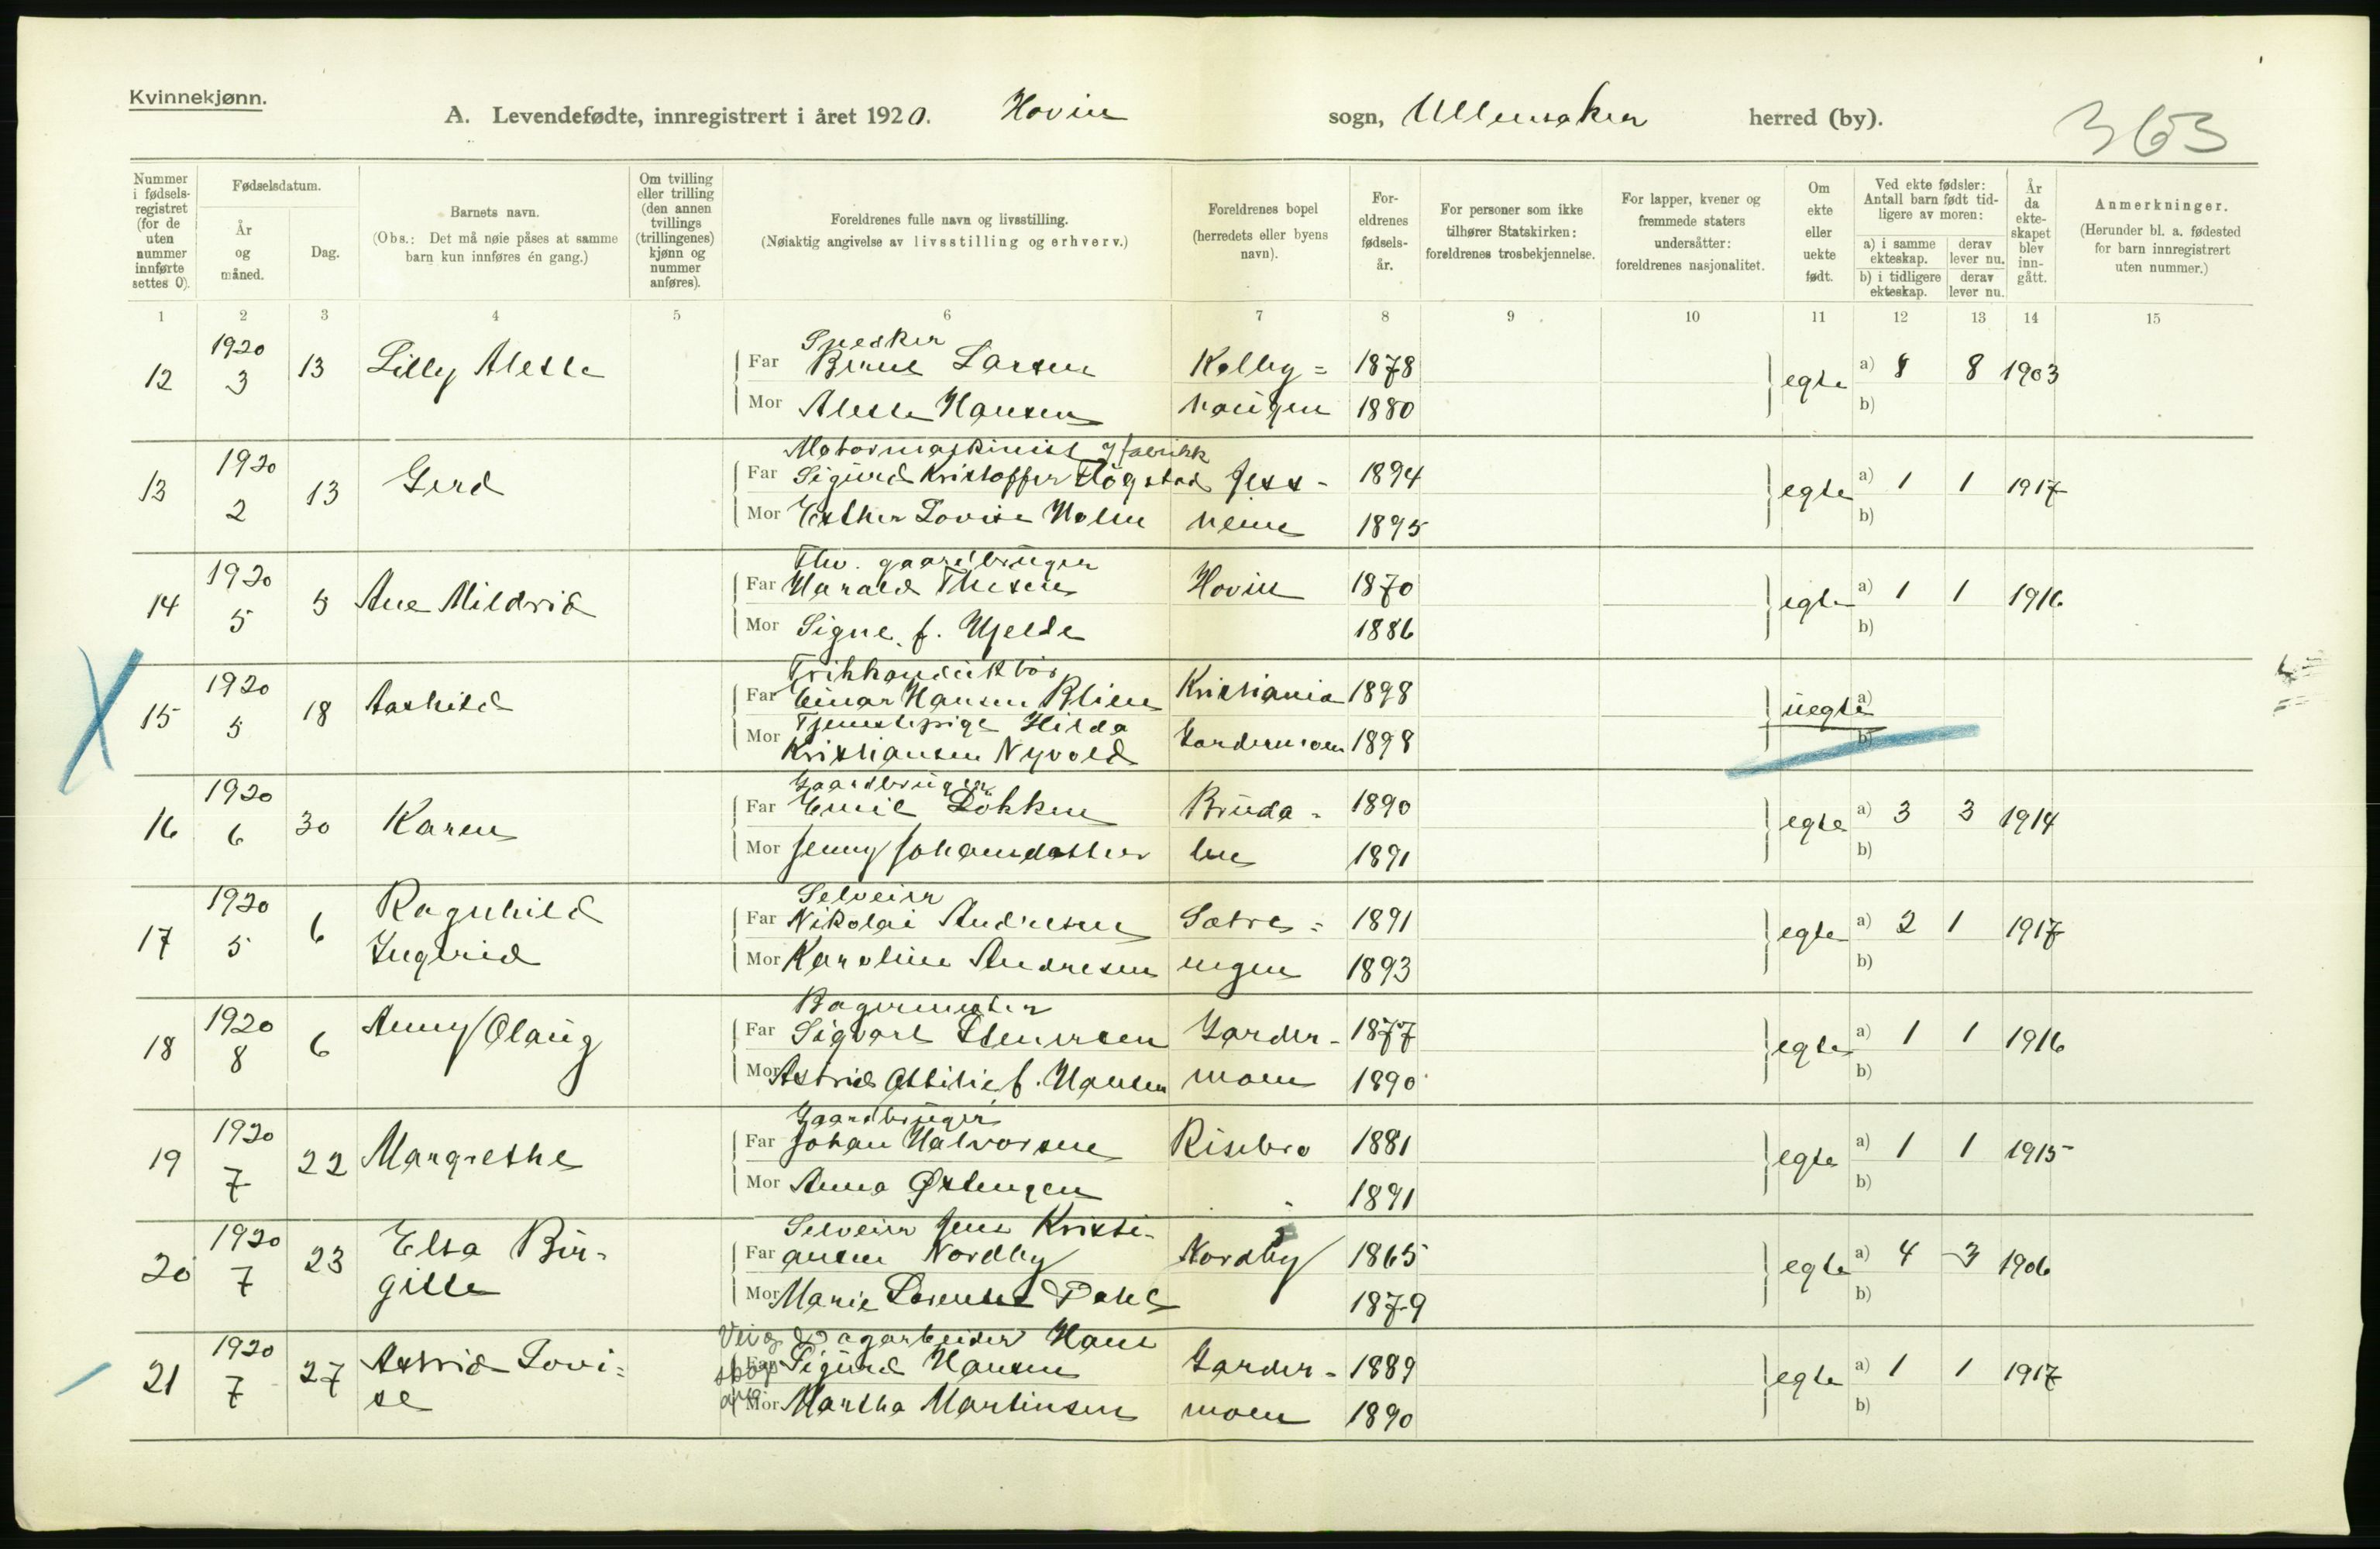 Kvinnekjønn.
A. Levendefødte, innregistrert i året 1920. Hovin sogn, Ullensaker herred (by). 363
Nummer i fødsels-registret (for de uten nummer innførte settes 0).
Fødselsdatum.
År og måned.
Dag.
Barnets navn.
(Obs.: Det må nøie påses at samme barn kun innføres én gang.)
Om tvilling eller trilling (den annen tvillings (trillingenes) kjønn og nummer anføres).
Foreldrenes fulle navn og livsstilling.
(Nøiaktig angivelse av livsstilling og erhverv.)
Foreldrenes bopel (herredets eller byens navn).
For-eldrenes fødsels-år.
For personer som ikke tilhører Statskirken: foreldrenes trosbekjennelse.
For lapper, kvener og fremmede staters undersåtter: foreldrenes nasjonalitet.
Om ekte eller uekte født.
Ved ekte fødsler: Antall barn født tid-ligere av moren:
a) i samme ekteskap. derav lever nu.
b) i tidligere ekteskap. derav lever nu.
År da ekte-skapet blev inn-gått.
Anmerkninger.
(Herunder bl. a. fødested for barn innregistrert uten nummer.)
1 2 3 4 5 6 7 8 9 10 11 12 13 14 15
Snedker
12 1920 3 13 Lilly Alette Far Bernt Larsen Kolby= 1878 egte a) 8 8 1903
Mor Alette Hansen haugen 1880 b)
Motormaskinist i fabrikk
13 1920 2 13 Gerd Far Sigurd Kristoffer Högstad Jess- 1894 egte a) 1 1 1917
Mor Esther Lovise Holm heim 1895 b)
Thv. gaardbruger
14 1920 5 5 Ane Mildrid Far Harald Thesen Hovin 1870 egte a) 1 1 1916
Mor Signe f. Hjelde 1886 b)
Trikkonduktör
15 1920 5 18 Aashild Far Einar Hansen Blien Kristiania 1898 uegte a)
Mor Tjenestepige Hilda
Kristiansen Nyvold Gardermoen 1898 b)
Gaardbruger
16 1920 6 30 Karen Far Emil Lökken Bruda- 1890 egte a) 3 3 1914
Mor Jenny Johansdatter len 1891 b)
Selveier
17 1920 5 6 Ragnhild Far Nikolai Andresen Sætre= 1891 egte a) 2 1 1917
Ingerid Mor Karoline Andresen engen 1893 b)
Bagermester
18 1920 8 6 Anny Olaug Far Sigvart Stenersen Garder- 1877 egte a) 1 1 1916
Mor Astrid Ottilie f. Hansen moen 1890 b)
Gaardbruger
19 1920 7 22 Margrethe Far Johan Halvorsen Risebro 1881 egte a) 1 1 1915
Mor Anna Østengen " 1891 b)
Selveier Jens Kristi-
20 1920 7 23 Elsa Bir- Far ansen Nordby Nordby 1865 egte a) 4 3 1906
gitte Mor Marie Lorentse Dahl 1879 b)
Vei og Dagarbeider Hans
21 1920 7 27 Astrid Lovi= skog Far Sigurd Hansen Garder- 1889 egte a) 1 1 1917
se arb Mor Martha Martinsen moen 1890 b)